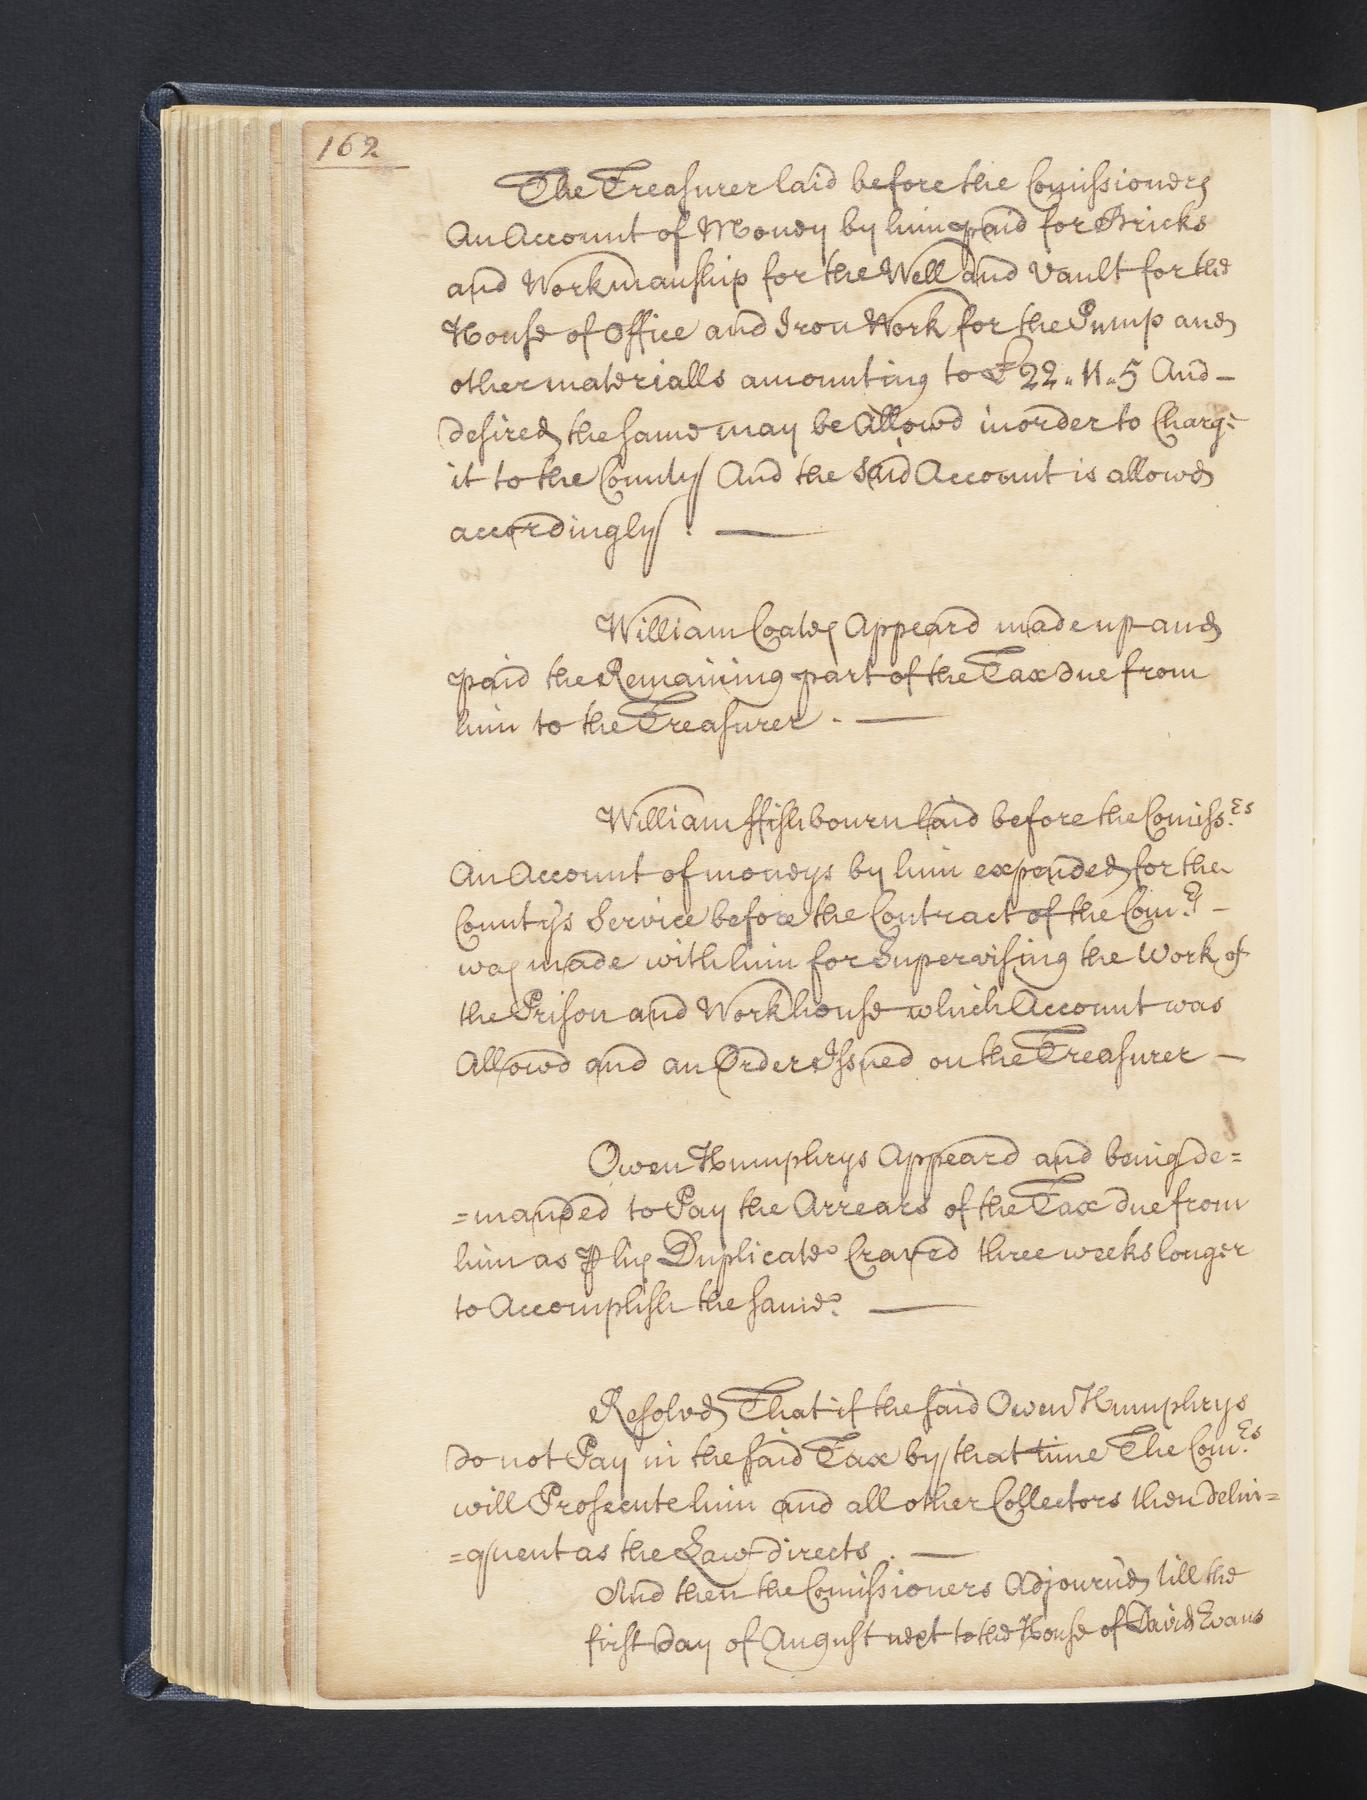 162
The Treasurer laid before the Comissioners
An Account of Money by him paid for Bricks
and Workmanship for the Well and Vault for the
House of Office and Iron Work for the Pump and
other materialls amounting to £22 „ 11 „ 5 And –
desired the same may be Allowd in order to Charge
it to the County And the said Account is allowd
accordingly . —
William Coates Appeard made up and
paid the Remaining part of the Tax due from
him to the Treasurer . —
William ffishbourn laid before the Comiss.rs
An Account of moneys by him expended for the
County's Service before the Contract of the Com.rs –
was made with him for Supervising the Work of
the Prison and Workhouse which Account was
Allowd and an Order Issued on the Treasurer —
Owen Humphrys Appeard and being de=
=manded to Pay the Arrears of the Tax due from
him as ꝑ his Duplicate Craved three weeks longer
to Accomplish the same. —
Resolvd That if the said Owen Humphrys
do not Pay in the said Tax by that time The Com.rs
will Prosecute him and all other Collectors then delin=
=quent as the Law directs . —
And then the Comissioners Adjourn'd till the
first Day of August next to the House of David Evans